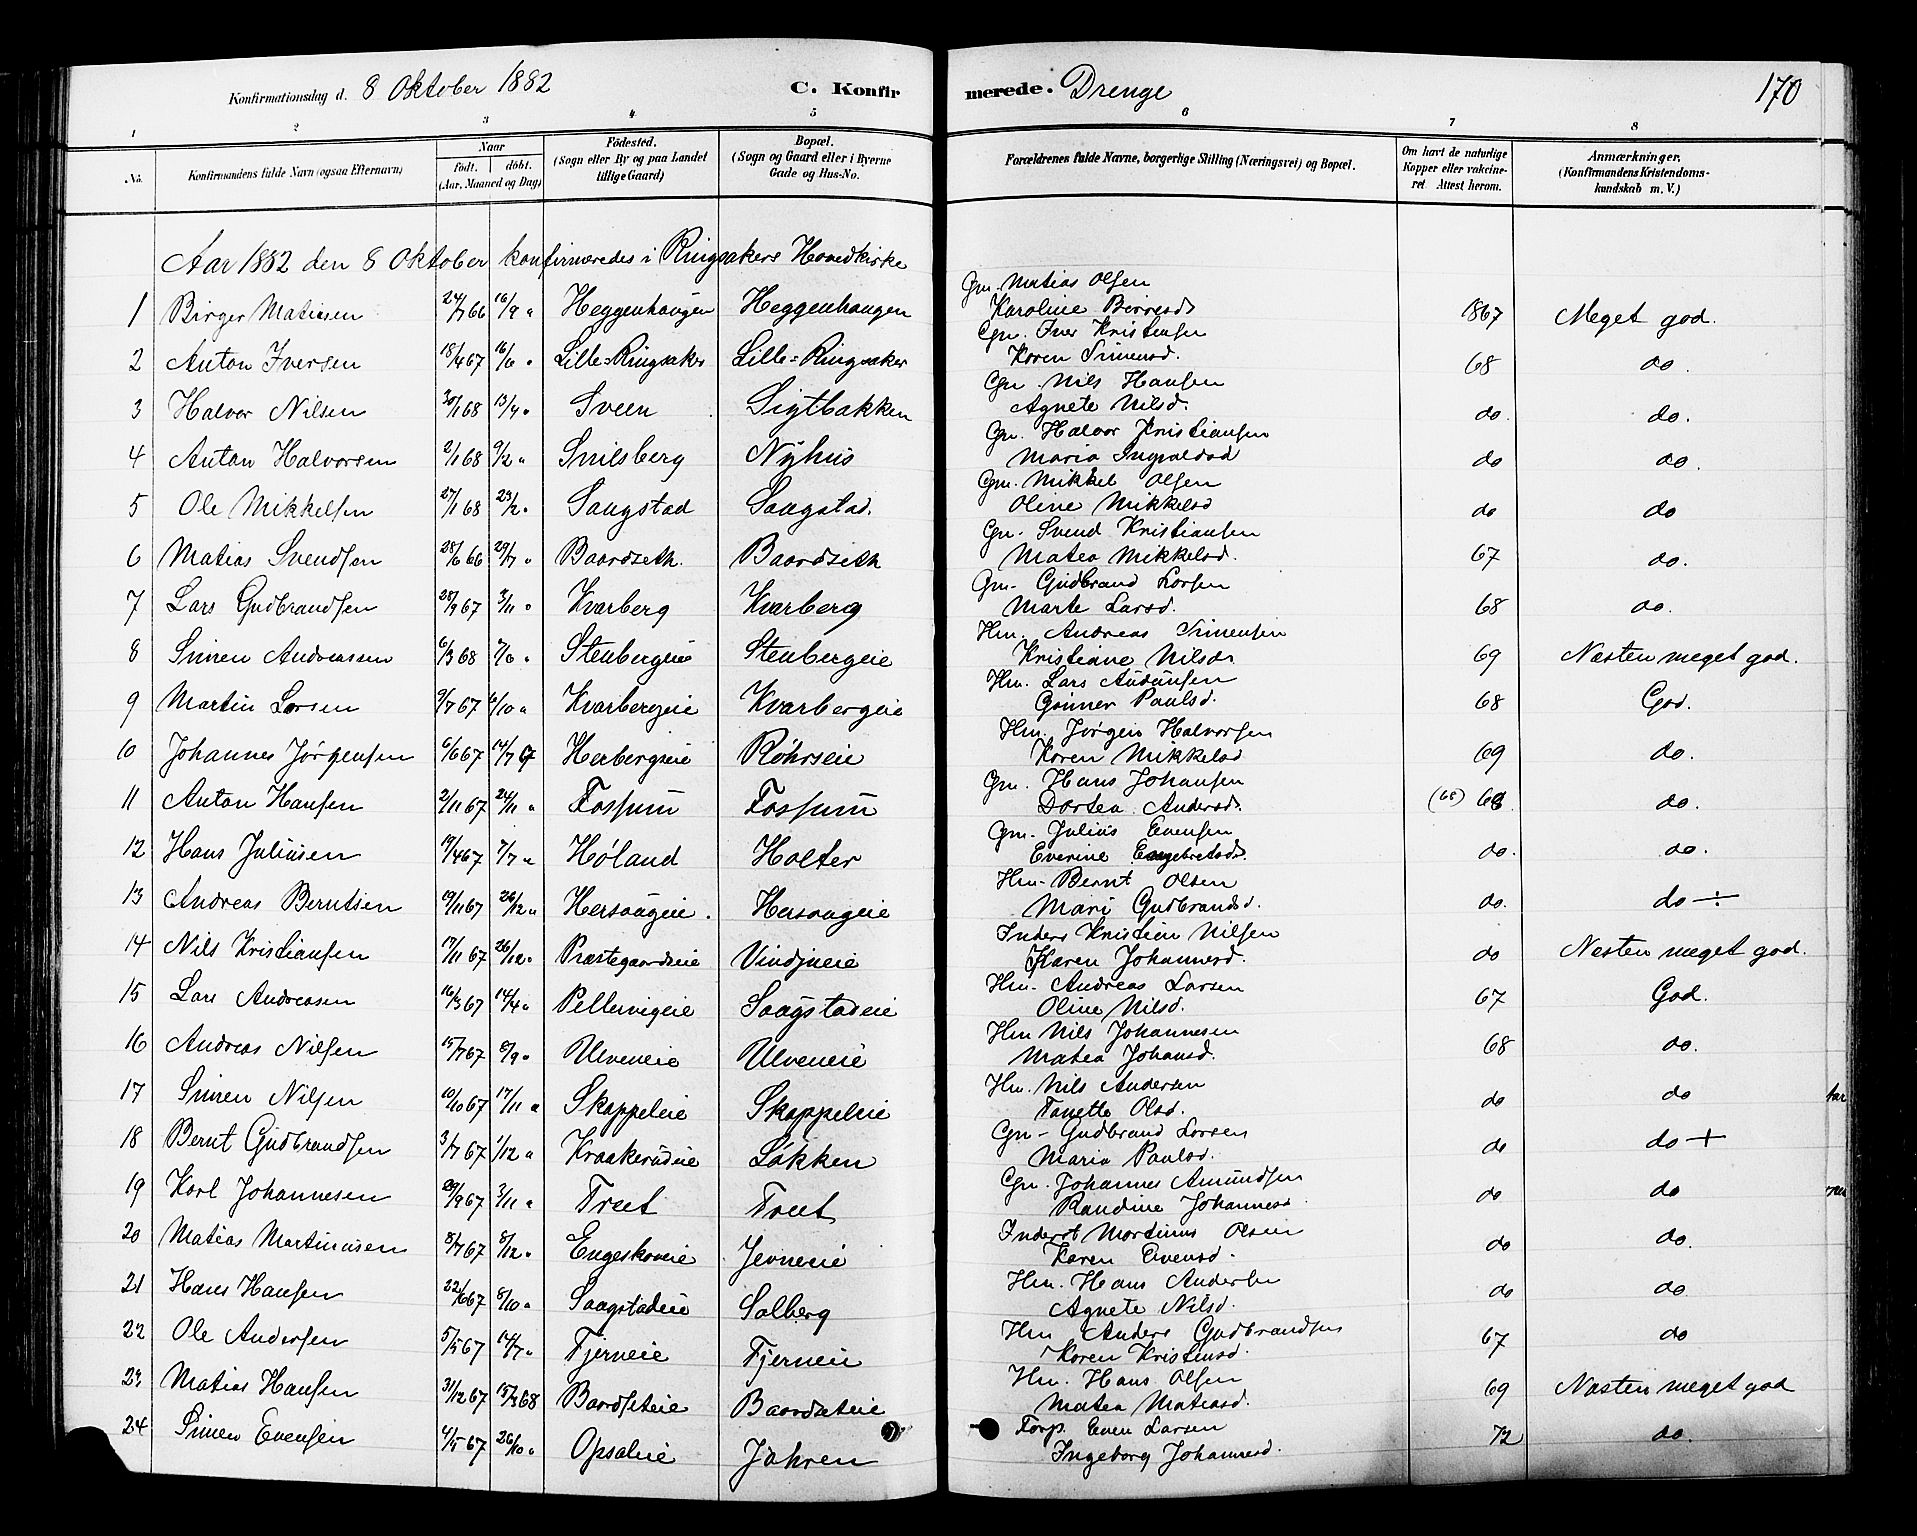 Konfirmationsdag d. 8 Oktober 1882 C. Konfirmerede. Drenge 170
1 2 3 4 5 6 7 8
No. Konfirmandens fulde Navn (ogsaa Efternavn) Naar født. døbt. (Aar, Maaned og Dag) Fødested. (Sogn eller By og paa Landet tillige Gaard) Bopæl. (Sogn og Gaard eller i Byerne Gade og Hus-No. Forældrenes fulde Navne, borgerlige Stilling (Næringsvei) og Bopæl. Om havt de naturlige Kopper eller vakcineret Attest herom. Anmærkninger. (Konfirmandens Kristendomskundskab m. V.)
Aar 1882 den 8 Oktober konfirmeredes i Ringsakers Hovedkirke
1 Birger Matiasen 24/7 66 16/9 " Heggenhaugen Heggenhaugen Gm. Matias Olsen Karoline Börresd 1867 Meget god.
2 Anton Iversen 18/4 67 16/6 " Lille=Ringsaker Lille=Ringsaker Gm. Iver Kristensen Karen Simensd. 68 do.
3 Halvor Nilsen 30/1 68 13/4 " Sveen Sigtbakken Gm. Nils Hansen Agnete Nilsd. do. do.
4 Anton Halvorsen 2/1 68 9/2 " Smilsberg Nyhus Gm. Halvor Kristiansen Maria Ingvaldsd do do.
5 Ole Mikkelsen 27/1 68 23/2 " Saugstad Saugstad. Gm. Mikkel Olsen Oline Mikkelsd do do
6 Matias Svendsen 28/6 66 29/7 " Baardseth. Baardseth Gm. Svend Kristiansen Matea Mikkelsd. 67 do.
7 Lars Gudbrandsen 28/9 67 3/11 " Kvarberg Kvarberg Gm. Gudbrand Larsen Marte Larsd. 68 do.
8 Simen Andreassen 6/3 68 7/6 " Stenbergeie Stenbergeie Hm. Andreas Simensen Kristiane Nilsd 69 Næsten meget god.
9 Martin Larsen 9/7 67 6/10 " Kvarbergeie Kvarbergeie Hm. Lars Audunsen Gunner Paulsd. 68 God.
10 Johannes Jørgensen 6/6 67 14/7 67 Herbergseie Röhrseie Hm. Jørgen Halvorsen Karen Mikkelsd 69 do.
11 Anton Hansen 2/11 67 24/11 " Fossum Fossum Gm. Hans Johansen Dortea Andersd. (68) 68 do.
12 Hans Juliusen 19/4 67 7/7 " Høland Holter Gm. Julius Evensen Everine Engebretsd. do. do.
13 Andreas Berntsen 19/11 67 26/12 " Hersaugeie. Hersaugeie Hm. Bernt Olsen Mari Gudbrandsd. do. do ÷
14 Nils Kristiansen 17/11 67 26/12 " Præstegaardseie Vindjueie Inders Kristian Nilsen Karen Johannesd. do Næsten meget god.
15 Lars Andreasen 16/3 67 14/4 " Pellervigeie Saugstadeie Hm. Andreas Larsen Oline Nilsd. 67 God.
16 Andreas Nilsen 15/7 67 8/9 " Ulveneie Ulveneie Hm Nils Johannesen Matea Johansd. 68 do.
17 Simen Nilsen 10/10 67 17/11 " Skappeleie Skappeleie Hm. Nils Andersen Tanette Olsd. do do
18 Bernt Gudbrandsen 3/7 67 1/12 " Kraakerudeie Løkken Gm. Gudbrand Larsen Maria Paulsd. do do +
19 Karl Johannesen 29/9 67 3/11 " Treet Treet Gm. Johannes Amundsen Randine Johannesd do do
20 Matias Martinusen 8/7 67 8/12 " Engeskoveie Jevneeie Inderst Martinus Olsen Karen Evensd. do do.
21 Hans Hansen 22/6 67 8/10 " Saugstadeie Solberg Hm. Hans Andersen Agnete Nilsd. do do.
22 Ole Andersen 5/5 67 14/7 " Tjerneie Tjerneie Hm Anders Gudbrandsen Karen Kristensd. 67 do
23 Matias Hansen 31/12 67 15/3 68 Baardseteie Baardseteie Hm. Hans Olsen Matea Matiasd. 69 Næsten meget god
24 Simen Evensen 4/5 67 26/10 " Opsaleie Jahren Torp. Even Larsen Ingeborg Johannesd. 72 do.